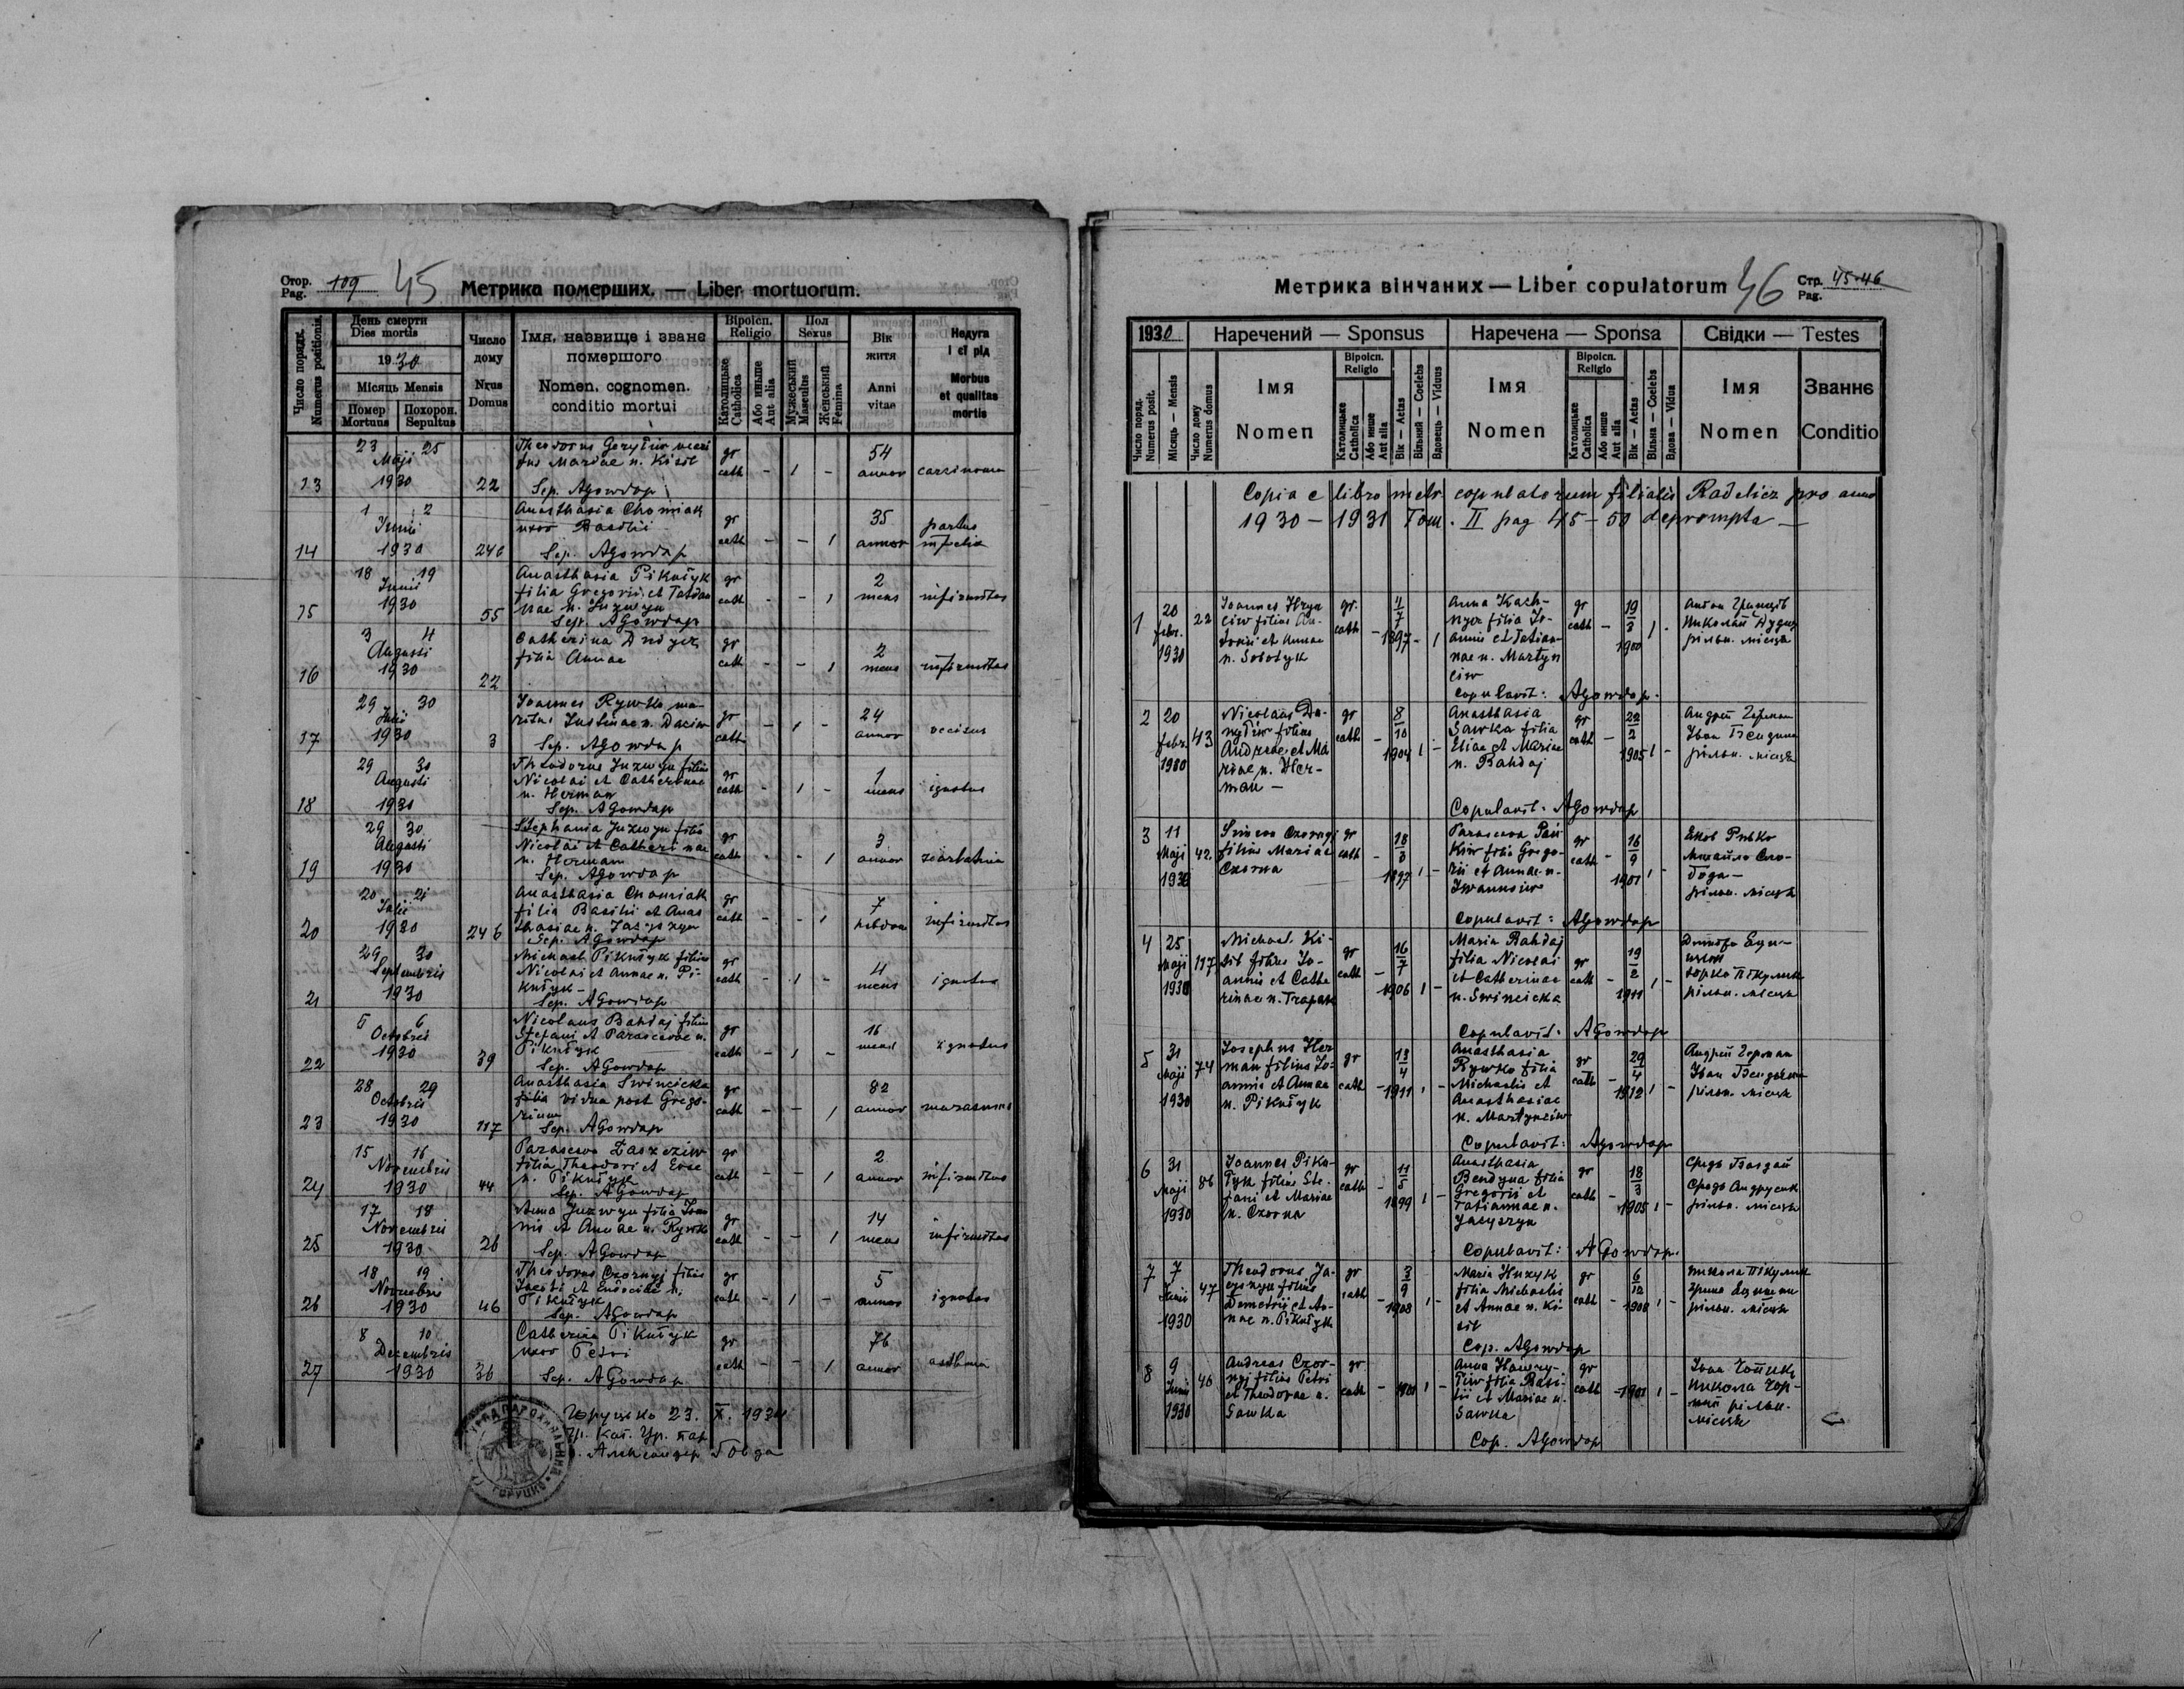 Стор. Pag. 109 45 Метрика померших. — Liber mortuorum.
Число порядк. Numerus positionis.
День смерти
Dies mortis
1930
Місяць Mensis
Помер Mortuus
Похорон. Sepultus
Число дому
Nrus Domus
Імя, назвище і званє помершого
Nomen, cognomen, conditio mortui
Віроісп. Religio
Католицьке Catholica
Або иньше Aut alia
Пол Sexus
Мужеський Masculus
Женський Femina
Вік житя
Anni vitae
Недуга і єї рід
Morbus et qualitas mortis
13 23 25 Maji 1930 22
Mariae n. Kisit
Sep. AGowdap
gr cath - 1 - 54 annor carcinoma
14 1 2 Junii 1930 246
Anasthasia Chomiak
uxor Basilii
Sep. AGowdap
gr cath - - 1 35 annor partus infelix
15 18 19 Junii 1930 55
Anasthasia Pikulyk
filia Gregorii et Tatian
nae n. Juzwyn
Sep. AGowdap
gr cath - - 1 2 mens infirmitas
16 3 4 Augusti 1930 22
Catherina
filia Annae
gr cath - - 1 2 mens infirmitas
17 29 30 Julii 1930 3
Joannes Rywko ma-
ritus Justinae n. Daciw
Sep. AGowdap
gr cath - 1 - 24 annor occisus
18 29 30 Augusti 1930
Theodorus Juzwyn filius
Nicolai et Catherinae
n. Herman
Sep. AGowdap
gr cath - 1 - 1 mens ignotus
19 29 30 Augusti 1930
Stephania Juzwyn filia
Nicolai et Catherinae
n. Herman
Sep. AGowdap
gr cath - - 1 3 annor
20 20 21 Julii 1930 246
Anasthasia Chomiak
filia Basilii et Anas
thasiae n.
Sep. AGowdap
gr cath - - 1 7 hebdom infirmitas
21 29 30 Septembris 1930
Michael Pikulyk filius
Nicolai et Annae n. Pi-
kulyk -
Sep. AGowdap
gr cath - 1 - 4 mens ignotus
22 5 6 Octobris 1930 39
Nicolaus Bahdaj filius
Stefani et Parascevae n.
Pikulyk
Sep. AGowdap
gr cath - 1 - 16 mens ignotus
23 28 29 Octobris 1930 117
Anasthasia Swincicka
filia vidua post Grego-
rium
Sep. AGowdap
gr cath - - 1 82 annor marasmus
24 15 16 Novembris 1930 44
Parasceva
filia Theodori et Evae
n. Pikulyk
Sep. AGowdap
gr cath - - 1 2 annor infirmitas
25 17 18 Novembris 1930 26
Anna Juzwyn filia Joan
nis et Annae n. Rywko
Sep. AGowdap
gr cath - - 1 14 mens infirmitas
26 18 19 Novembris 1930 46
Theodorus Czornyj filius
Jacobi et Eudociae n.
Pikulyk
Sep. AGowdap
gr cath - 1 - 5 annor ignotus
27 8 10 Decembris 1930 36
Catherina Pikulyk
uxor Petri
Sep. AGowdap
gr cath - - 1 76 annor asthma
Горуцько 23. X. 1934
Гр. кат. Ур. пар
о. Александер Говда
Метрика вінчаних — Liber copulatorum 46 Стр. Pag. 45-46
1930
Наречений — Sponsus
Наречена — Sponsa
Свідки — Testes
Число поряд. Numerus posit.
Місяць — Mensis
Число дому Numerus domus
Імя Nomen
Віроісп. Religio
Католицьке Catholica
Або инше Aut alia
Вік — Aetas
Вільний — Coelebs
Вдовець — Viduus
Імя Nomen
Віроісп. Religio
Католицьке Catholica
Або инше Aut alia
Вік — Aetas
Вільна — Coelebs
Вдова — Vidua
Імя Nomen
Званнє Conditio
Copia e libro metr. copulatorum filialis Radelicz pro anno
1930 - 1931 Tom. II pag 45 - 50 deprompta —
1 20 febr. 1930 22
Joannes Hryn
ciw filius An-
tonii et Annae
n. Sobotyk
gr. cath - 4/7 1897 - 1
Anna Kach-
filia Jo-
annis et Tatian-
nae n. Martyn
ciw
gr cath - 19/3 1900 1 -
Антон Гринців
Николай
рільн. місцеві
Copulavit: AGowdap.
2 20 febr. 1930 43
Nicolaus
filius
Andreae et Ma
riae n. Her-
man -
gr cath - 8/10 1904 1 -
Anasthasia
Sawka filia
Eliae et Mariae
n. Bahdaj
gr cath - 22/2 1905 1 -
Андрій Герман
Іван Бендина
рільн. місцеві
Copulavit: AGowdap
3 11 Maji 1930 42
Simeon Czornyj
filius Mariae
Czorna
gr cath - 18/3 1897 1 -
Parasceva
filia Grego-
rii et Annae n.
gr cath - 16/9 1901 1 -
Яков Ривко
Михайло Сло-
бода -
рільн. місцеві
Copulavit: AGowdap
4 25 Maji 1930 117
Michael Ki-
sit filius Jo-
annis et Cathe
rinae n. Trapak
gr cath - 16/7 1906 1 -
Maria Bahdaj
filia Nicolai
et Catherinae
n. Swincicka
gr cath - 19/2 1911 1 -
Юрко Пікулик
рільн. місцеві
Copulavit: AGowdap
5 31 Maji 1930 74
Josephus Her
man filius Jo-
annis et Annae
n. Pikulyk
gr cath - 13/4 1911 1 -
Anasthasia
Rywko filia
Michaelis et
Anasthasiae
n. Martynciw
gr cath - 29/4 1912 1 -
Андрій Герман
Іван Бендина
рільн. місцеві
Copulavit: AGowdap
6 31 Maji 1930 86
Joannes Piku-
lyk filius Ste-
fani et Mariae
n. Czorna
gr cath - 11/5 1899 1 -
Anasthasia
Bendyna filia
Gregorii et
Tatiannae n.
Jacyszyn
gr cath - 18/3 1905 1 -
Федь Багдай
Федь Андрусик
рільн. місцеві
Copulavit: AGowdap.
7 7 Junii 1930 47
Theodorus Ja-
cyszyn filius
Demetrii et An-
nae n. Pikulyk
gr cath - 3/9 1908 1 -
Maria Huzyk
filia Michaelis
et Annae n. Ki-
sit
gr cath - 6/12 1908 1 -
Микола Пікулик
рільн. місцеві
Cop. AGowdap
8 9 Junii 1930 46
Andreas Czor-
nyj filius Petri
et Theodorae n.
Sawka
gr cath - 1901 1 -
Anna Hawry-
liw filia Basi-
lii et Mariae n.
Sawka
gr cath - 1901 1 -
Микола Чор-
ний рільн.
місцеві
Cop. AGowdap